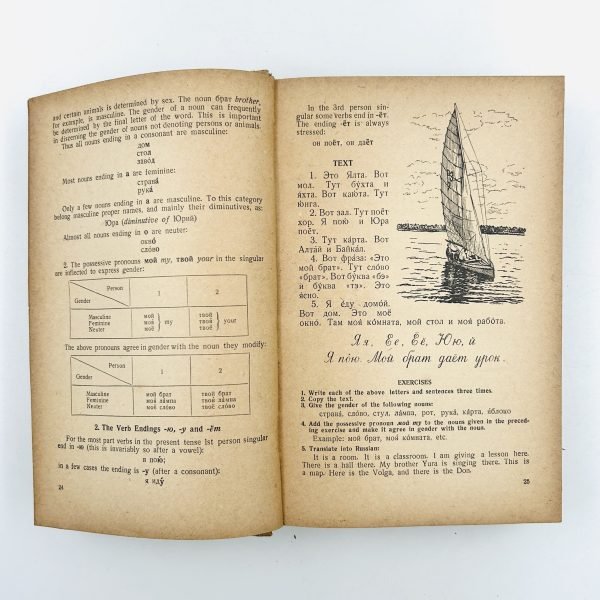 and certain animals is determined by sex. The noun брат brother,
for example, is masculine. The gender of a noun can frequently
be determined by the final letter of the word. This is important
in discerning the gender of nouns not denoting persons or animals.
Thus all nouns ending in a consonant are masculine:
дом
стол
заво́д
Most nouns ending in а are feminine:
страна́
рука́
Only a few nouns ending in а are masculine. To this category
belong masculine proper names, and mainly their diminutives, as:
Юра (diminutive of Юрий)
Almost all nouns ending in о are neuter:
окно́
сло́во
2. The possessive pronouns мой my, твой your in the singular
are inflected to express gender:
Person
Gender
1
2
Masculine мой твой
Feminine моя́ my твоя́ your
Neuter моё твоё
The above pronouns agree in gender with the noun they modify:
Person
Gender
1
2
Masculine мой брат твой брат
Feminine моя́ ла́мпа твоя́ ла́мпа
Neuter моё сло́во твоё сло́во
2. The Verb Endings -ю, -у and -ёт
For the most part verbs in the present tense 1st person singular
end in -ю (this is invariably so after a vowel):
я пою́
in a few cases the ending is -у (after a consonant):
я иду́
24
In the 3rd person sin-
gular some verbs end in -ёт.
The ending -ёт is always
stressed:
он поёт, он даёт
TEXT
1. Это Ялта. Вот
мол. Тут бу́хта и
я́хта. Вот каю́та. Тут
ю́нга.
2. Вот зал. Тут поёт
хор. Я пою́ и Юра
поёт.
3. Тут ка́рта. Вот
Алта́й и Байка́л.
4. Вот фра́за: «Это
мой брат». Тут сло́во
«брат». Вот бу́ква «бэ»
и бу́ква «тэ». Это
я́сно.
5. Я е́ду домо́й.
Вот дом. Это моё
окно́. Там моя́ ко́мната, мой стол и моя́ рабо́та.
Яя, Ее, Её, Юю, й
Я пою. Мой брат даёт урок.
EXERCISES
1. Write each of the above letters and sentences three times.
2. Copy the text.
3. Give the gender of the following nouns:
страна́, сло́во, стул, ла́мпа, рот, рука́, ка́рта, я́блоко
4. Add the possessive pronoun мой my to the nouns given in the preced-
ing exercise and make it agree in gender with the noun.
Example: мой брат, моя́ ко́мната, etc.
5. Translate into Russian:
It is a room. It is a classroom. I am giving a lesson here.
There is a hall there. My brother Yura is singing there. This is a
map. Here is the Volga, and there is the Don.
25